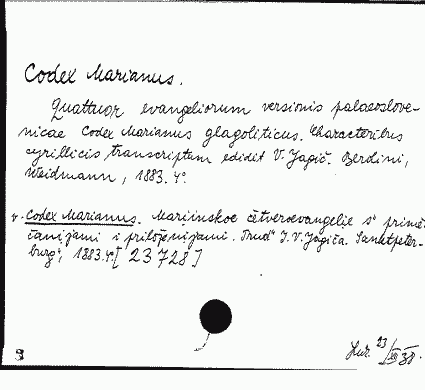 Codex Marianus.
Quattuor evangeliorum versionis palaeoslove-
nicae Codex Marianus glagoliticus. Characteribus
cyrillicis transcriptum edidit V. Jagič. Berolini,
Weidmann, 1883. 4°.
v. Codex Marianus. Mariinskoe četveroevangelie s" primě-
čanijami i priloženijami. Trud" I. V. Jagiča. Sanktpeter-
burg", 1883. 4°. [23728]
9
23/XII 38.